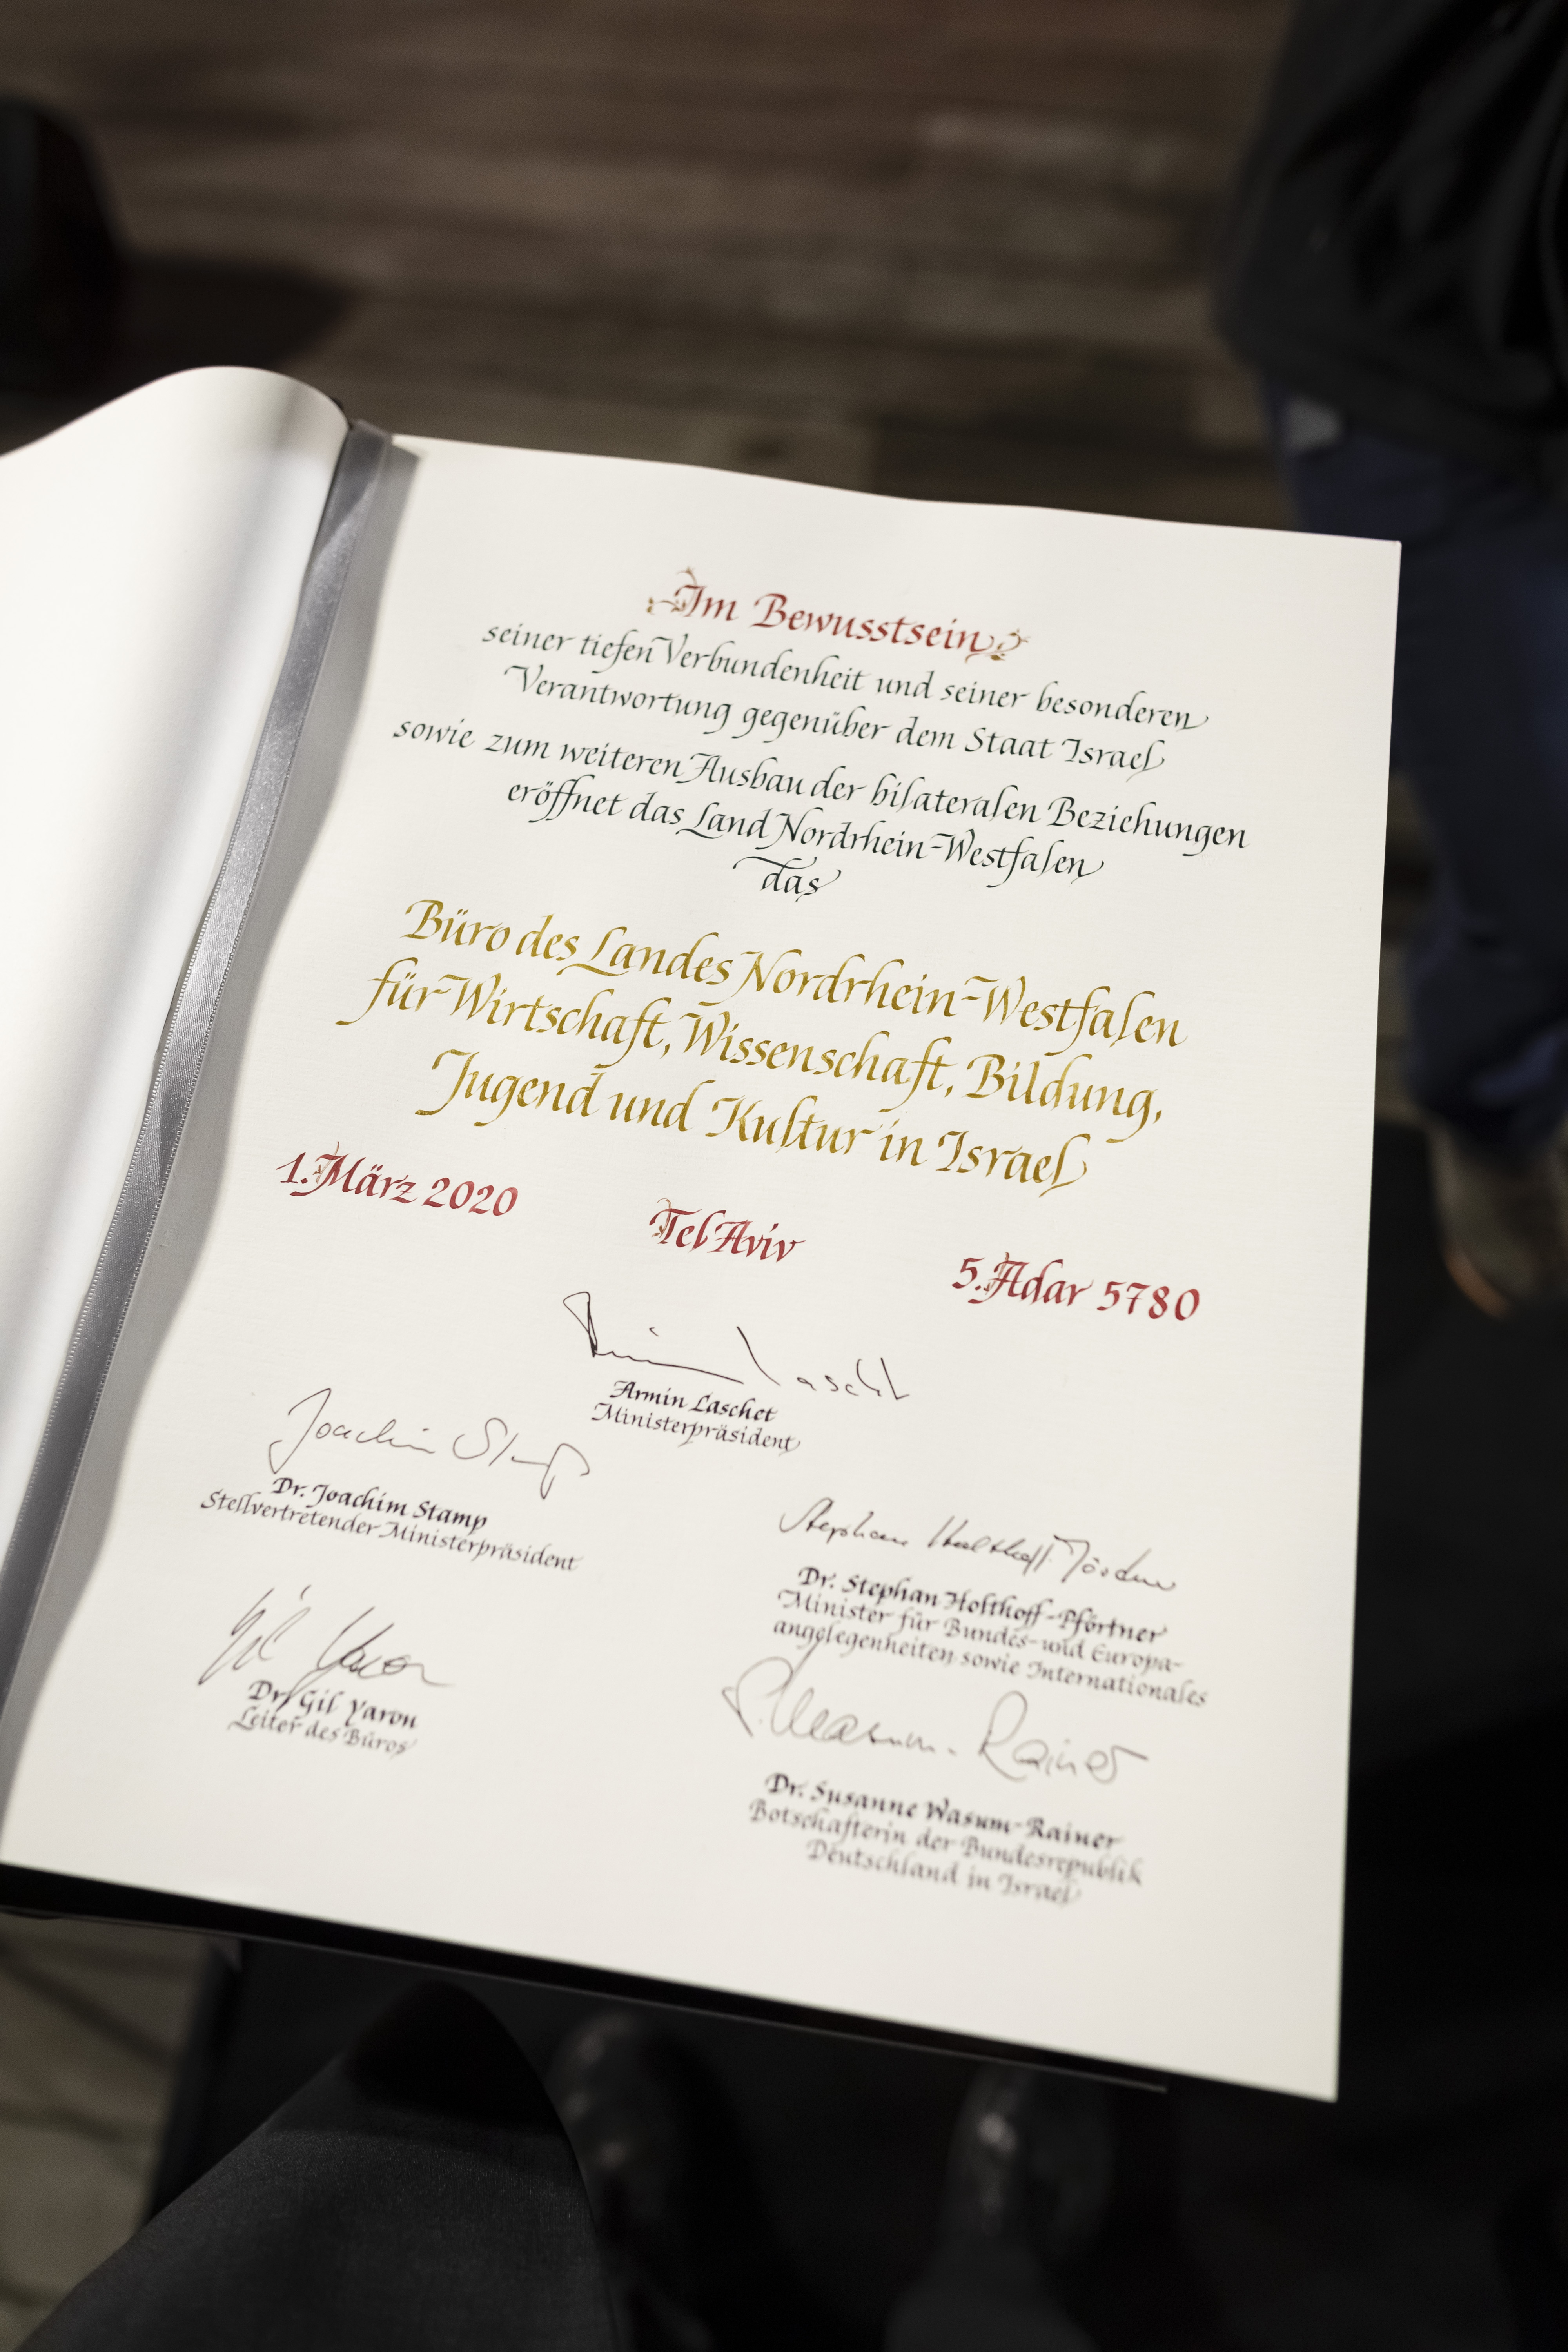 Im Bewusstsein
seiner tiefen Verbundenheit und seiner besonderen
Verantwortung gegenüber dem Staat Israel
sowie zum weiteren Ausbau der bilateralen Beziehungen
eröffnet das Land Nordrhein-Westfalen
das
Büro des Landes Nordrhein-Westfalen
für Wirtschaft, Wissenschaft, Bildung,
Jugend und Kultur in Israel
1. März 2020
Tel Aviv
5. Adar 5780
Armin Laschet
Armin Laschet
Ministerpräsident
Joachim Stamp
Dr. Joachim Stamp
Stellvertretender Ministerpräsident
Stephan Holthoff-Pförtner
Dr. Stephan Holthoff-Pförtner
Minister für Bundes- und Europa-
angelegenheiten sowie Internationales
Gil Yaron
Dr. Gil Yaron
Leiter des Büros
S. Wasum-Rainer
Dr. Susanne Wasum-Rainer
Botschafterin der Bundesrepublik
Deutschland in Israel